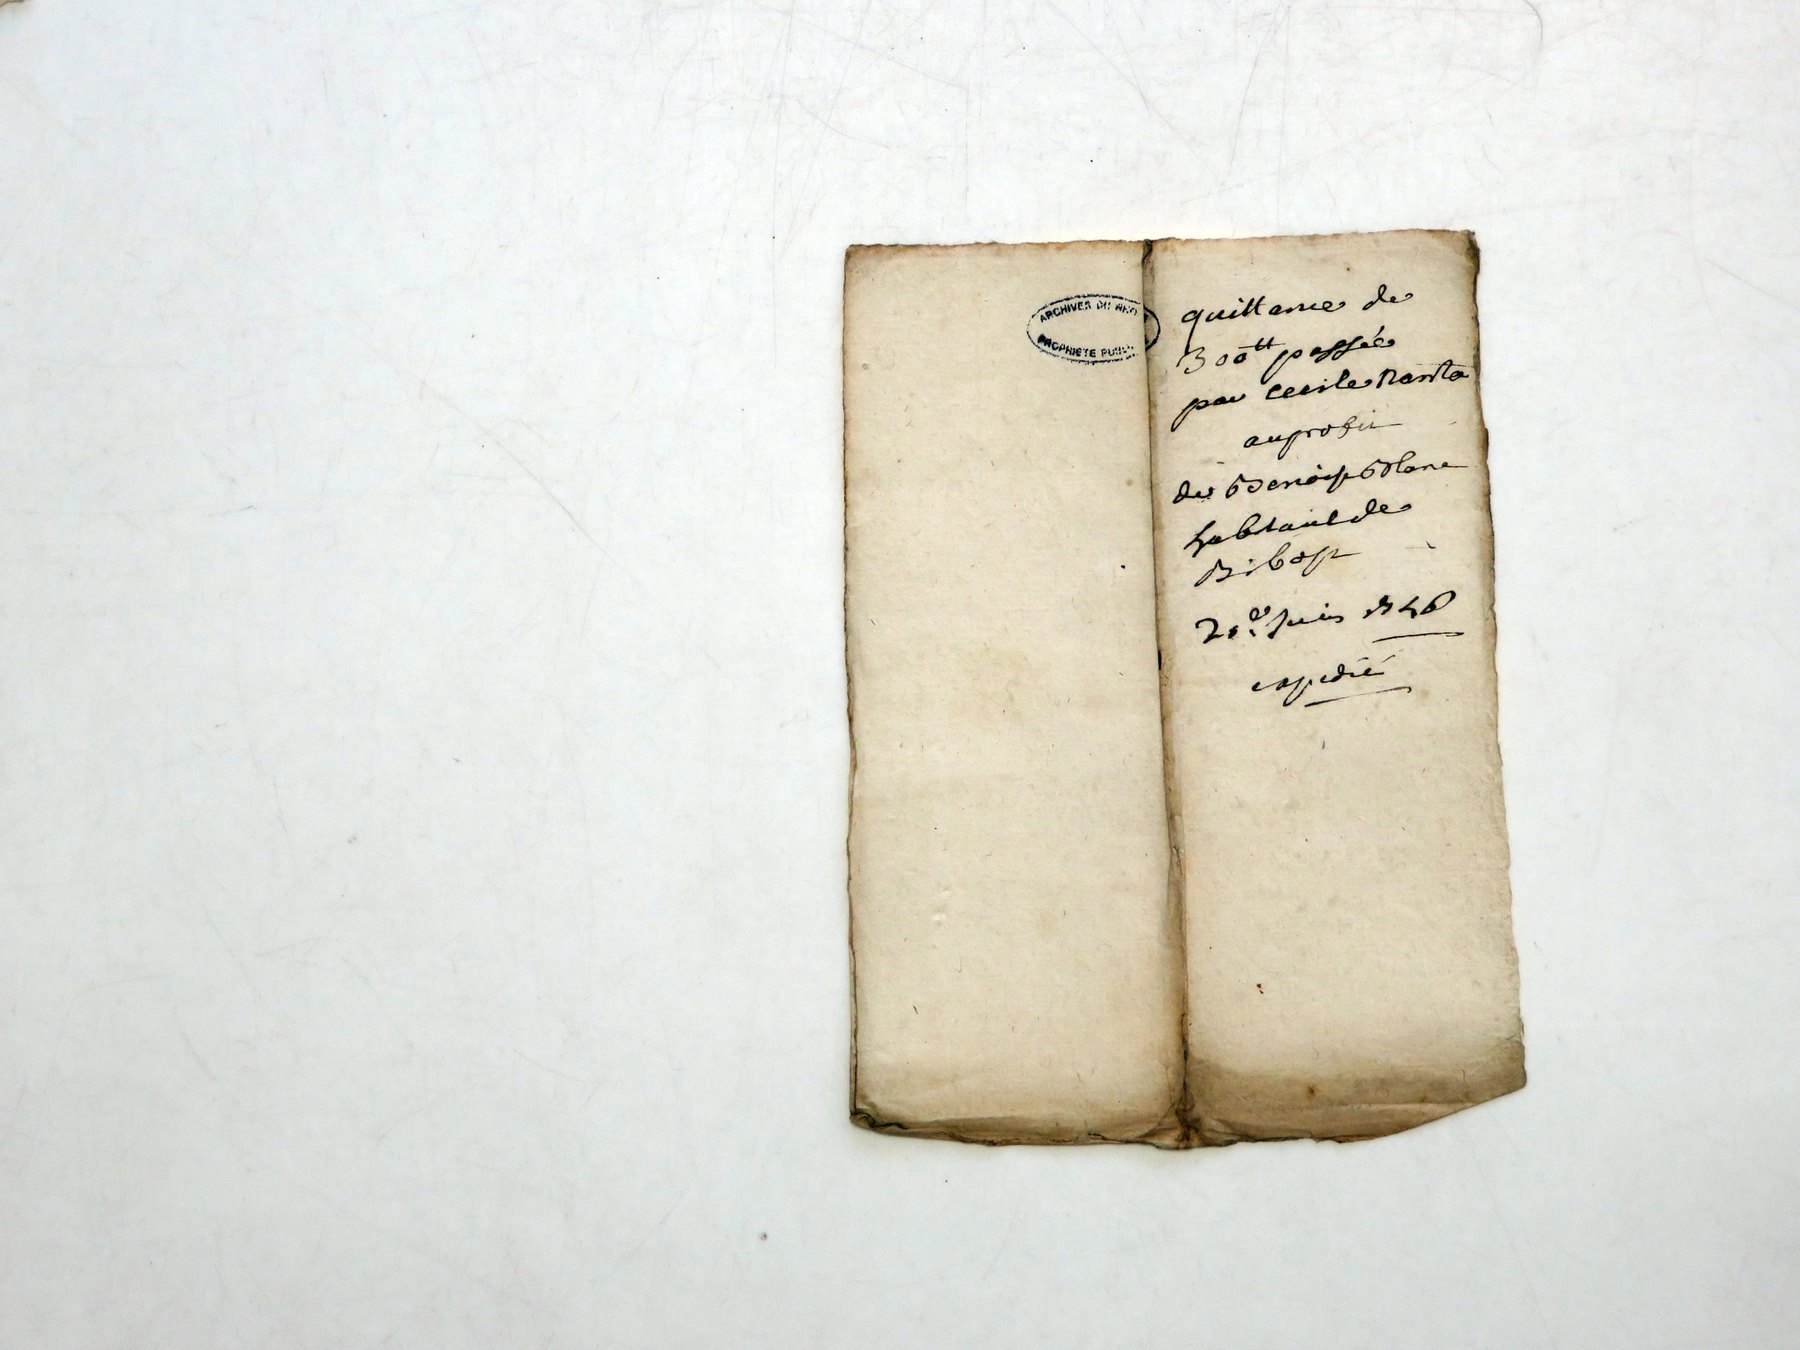 ARCHIVES DU RHO
PROPRIETE PUBL
quittance de
300ᵗᵗ passée
par Cecile
au profit
de Benoist Blanc
habitant de
Bibost
Juin
expedié